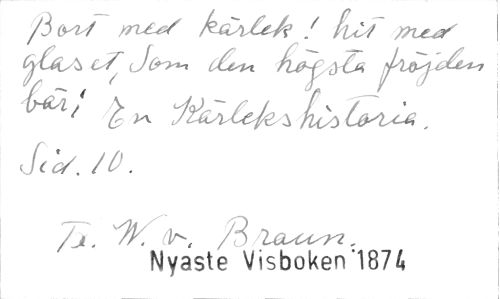 Bort med kärlek! hit med
glaset, Som den högsta fröjden
bär! En Kärlekshistoria.
Sid. 10.
Te. W. v. Braun.
Nyaste Visboken 1874